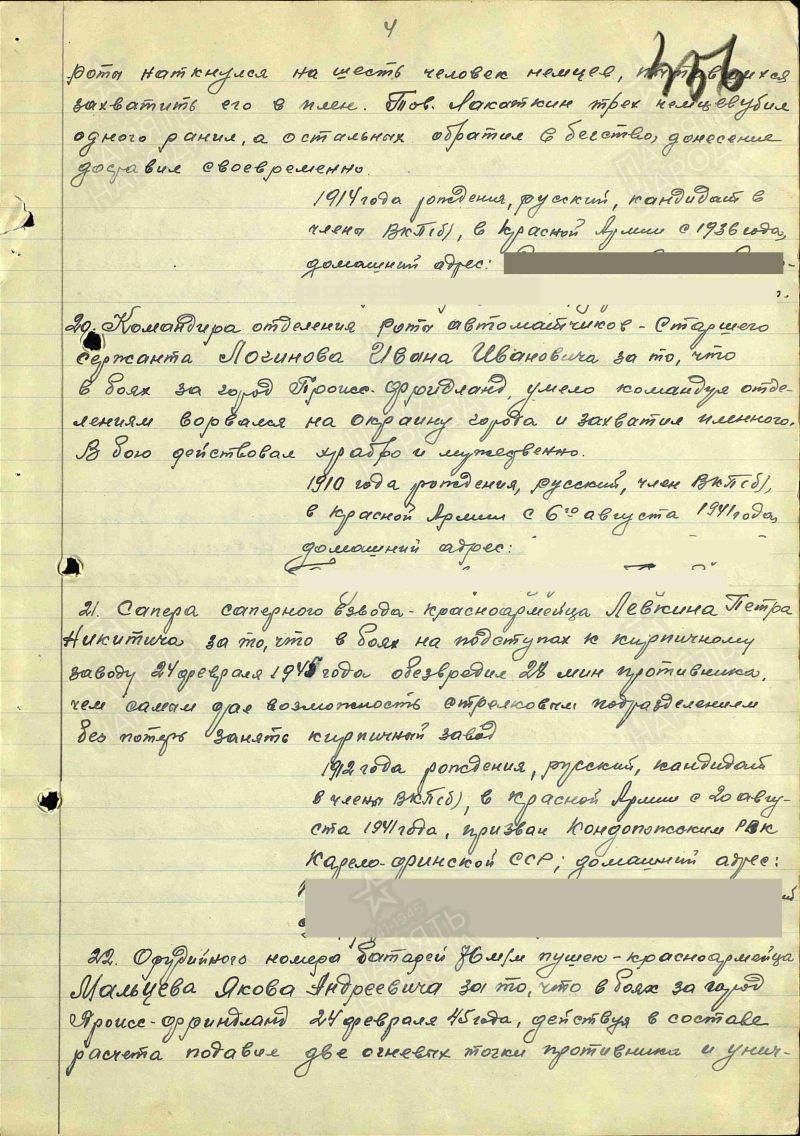 4
роты наткнулся на шесть человек немцев, пытавшихся
захватить его в плен. Тов. Лакаткин трех немцев убил
одного ранил, а остальных обратил в бегство, донесение
доставил своевременно.
1914 года рождения, русский, кандидат в
члены ВКП(б), в Красной Армии с 1936 года,
домашний адрес:
20. Командира отделения роты автоматчиков - Старшего
сержанта Логинова Ивана Ивановича за то, что
в боях за город Пройсс-Фридланд, умело командуя отде-
лениям ворвался на окраину города и захватил пленного.
В бою действовал храбро и мужественно.
1910 года рождения, русский, член ВКП(б),
в Красной Армии с 6го августа 1941 года,
домашний адрес:
21. Сапера саперного взвода - красноармейца Левкина Петра
Никитича за то, что в боях на подступах к кирпичному
заводу 24 февраля 1945 года обезвредил 28 мин противника,
чем самам дал возможность стрелковым подразделением
без потерь занять кирпичный завод
1912 года рождения, русский, кандидат
в члены ВКП(б), в Красной Армии с 20 авгу-
ста 1941 года, призван Кондопожским РВК
Карело-Финской ССР; домашний адрес:
22. Орудийного номера батарей 76 м/м пушек - красноармейца
Мальцева Якова Андреевича за то, что в боях за город
Пройсс-Фриндланд 24 февраля 45 года, действуя в составе
расчета подавил две огневых точки противника и унич-